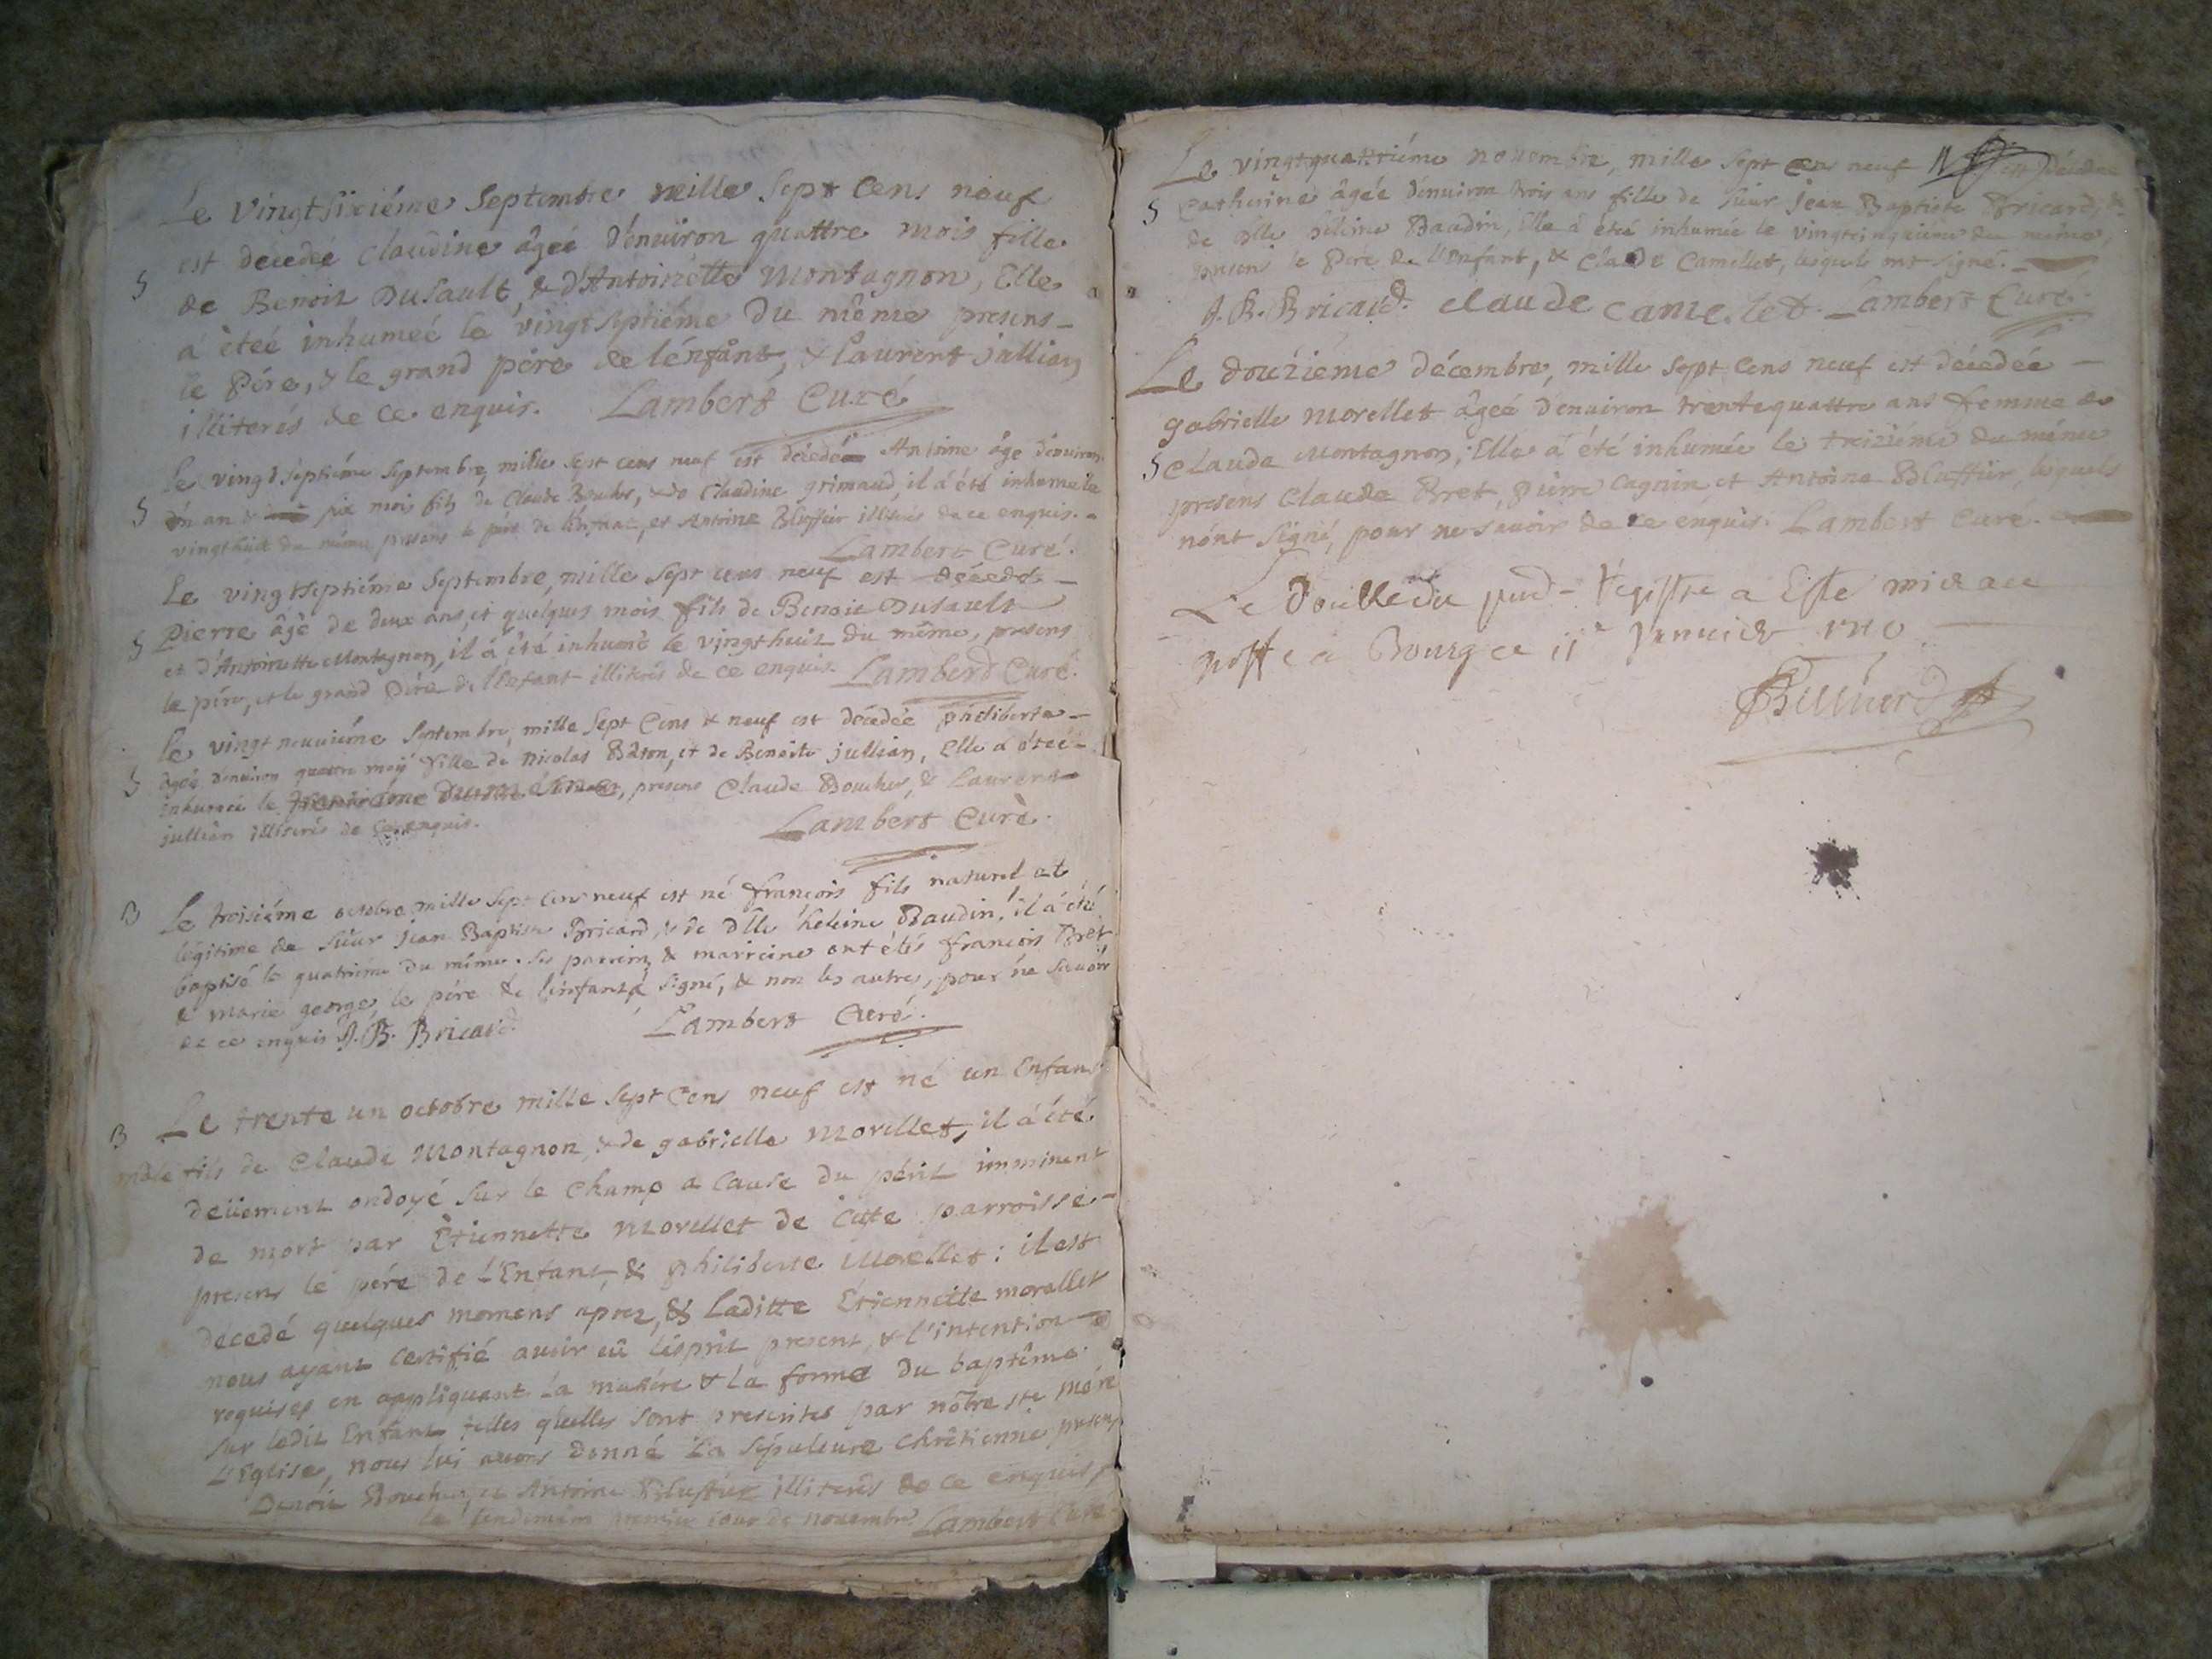 Le vingtsixiéme Septembre mille Sept Cens neuf
est décedée Claudine âgeé d'enuiron quattre mois fille
S de Benoit Dusault, & d'Antoinette Montagnon, Elle
a êteé inhumeé le vingtseptiéme du même presens
le Pére, & le grand pére de l'énfant, & Laurent jullian
illiterés de ce enquis. Lambert Curé
Le vingt septiéme septembre, mille sept cens neuf est décedé Antoine âgé d'enuiron
S un an & six mois fils de Claude Boucher, & de Claudine grimaud, il á été inhumé le
vingthuit du même presens le pére de l'énfant, et Antoine Bluffier illiterés de ce enquis.
Lambert Curé.
Le vingtseptiéme Septembre, mille sept cens neuf est décedé
S Pierre âgé de deux ans et quelques mois fils de Benoit Dusault
et d'Antoinette Montagnon, il á été inhumé le vingthuit du même, presens
le pére, et le grand Pére de l'Enfant illiterés de ce enquis. Lambert Curé.
Le vingt neuuiéme Septembre, mille Sept Cens & neuf est décedée philiberte
S âgeé d'enuiron quattre moys fille de Nicolas et de Benoite jullian, Elle a êteé
inhumeé le presens Claude Boucher, & Laurent
jullian illiterés de ce enquis.
Lambert Curé.
B Le troisiéme octobre mille sept cens neuf est né françois fils naturel et
légitime de Sieur Jean Baptiste Bricard, & de dlle héleine Baudin, il á été
baptisé le quatriéme du même. Ses parrein & marreine ont étés françois Bret
& marie george, le pére de l'énfant á signé, & non les autres, pour ne sauoir
de ce enquis J. B. Bricard. Lambert Curé.
B Le trente un octobre mille sept Cens neuf est né un Enfant
mâle fils de Claude Montagnon, & de gabrielle Morellet, il á été
deüement ondoyé sur le champ a cause du péril imminent
de mort par Étiennette Morellet de cette parroisse
presens le pére de L'Enfant, & philiberte Morellet: il est
décedé quelques momens aprez, & Laditte Étiennette morellet
nous ayant certifié auoir eû l'ésprit present, & l'intention
requises en appliquant la matiére & la forme du baptême
sur ledit Enfant telles qu'elles sont prescrites par nôtre ste mére
L'Eglise, nous lui auons donné la sépulture chrêtienne presens
Benoit Boucher, et Antoine Bluffier illiterés de ce enquis,
le lendemain premier iour de nouembre Lambert Curé
Le vingtquattriéme nouembre, mille sept cens neuf est décedée
S Catherine âgée d'enuiron trois ans fille de sieur Jean Baptiste Bricard, &
de dlle héleine Baudin, Elle á été inhumée le vingtcinquiéme du même,
presens le Pére de l'énfant, & Claude Camellet, lesquels ont signé.
J. B. Bricard. claude camelet. Lambert Curé.
Le douziéme décembre, mille sept cens neuf est décedée
gabrielle Morellet âgeé d'enuiron trentequattre ans femme de
S Claude Montagnon; Elle á été inhumée le treiziéme du même
presens Claude Bret, pierre Cagnin et Antoine Bluffier, lesquels
n'ónt signé, pour ne sauoir de ce enquis. Lambert Curé.
Le Double du Registre a Esté mis au
greffe a Bourg ce 11e Januier 1710